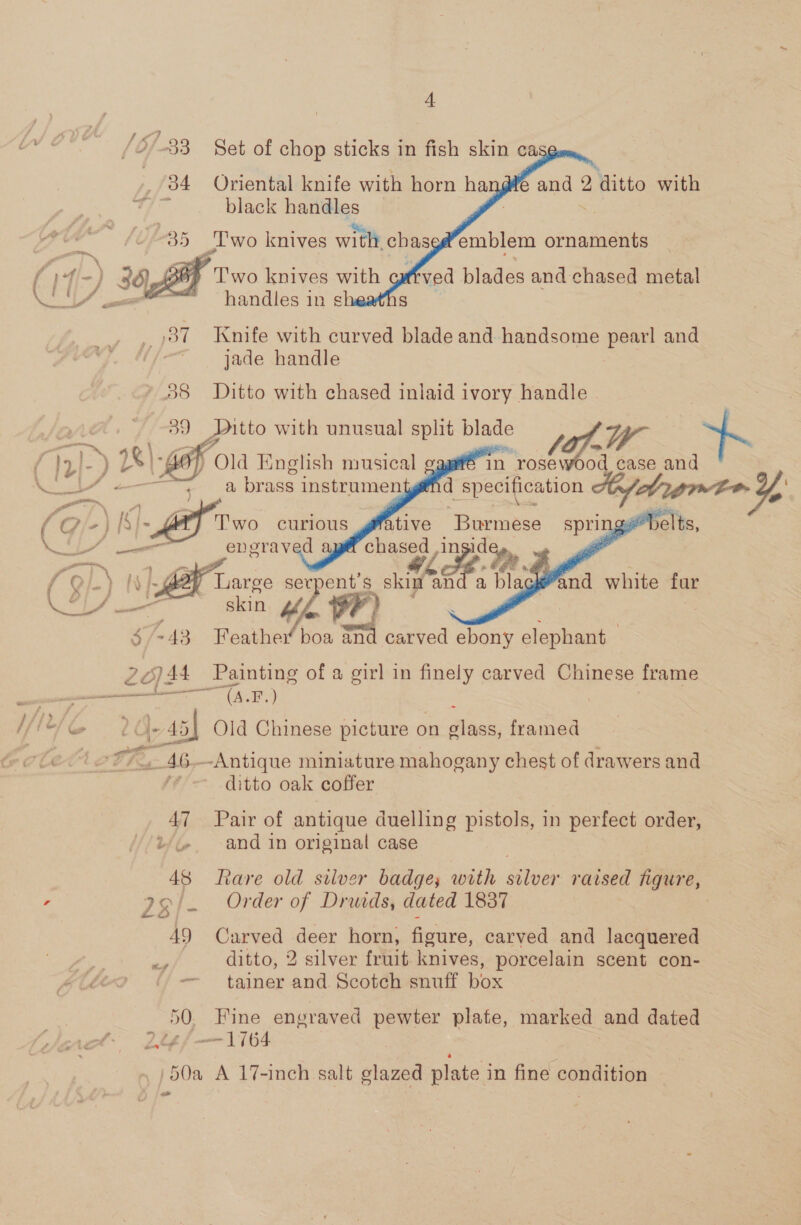 4
15/- 33 Set of chop sticks in fish skin case
34 Oriental knife with horn handle and 2 ditto with
black handles
35 Two knives with chased emblem ornaments
(17/-) 36 Two knives with carved blades and chased metal
handles in sheaths
37 Knife with curved blade and handsome pearl and
jade handle
38 Ditto with chased inlaid ivory handle
39 Ditto with unusual split blade
(12/-) 18/- 40 Old English musical game in rosewood case and
a brass instrument and specification
Two curious native Burmese spring belts,
engraved and chased inside
Large serpent's skin and a black and white fur
skin
43 Feather boa and carved ebony elephant
44 Painting of a girl in finely carved Chinese frame
(A.F.)
45 Old Chinese picture on glass, framed
46 Antique miniature mahogany chest of drawers and
ditto oak coffer
47 Pair of antique duelling pistols, in perfect order,
and in original case
48 Rare old silver badge, with silver raised figure,
28/- Order of Druids, dated 1837
49 Carved deer horn, figure, carved and lacquered
ditto, 2 silver fruit knives, porcelain scent con-
tainer and Scotch snuff box
50 Fine engraved pewter plate, marked and dated
1764
50a A 17-inch salt glazed plate in fine condition